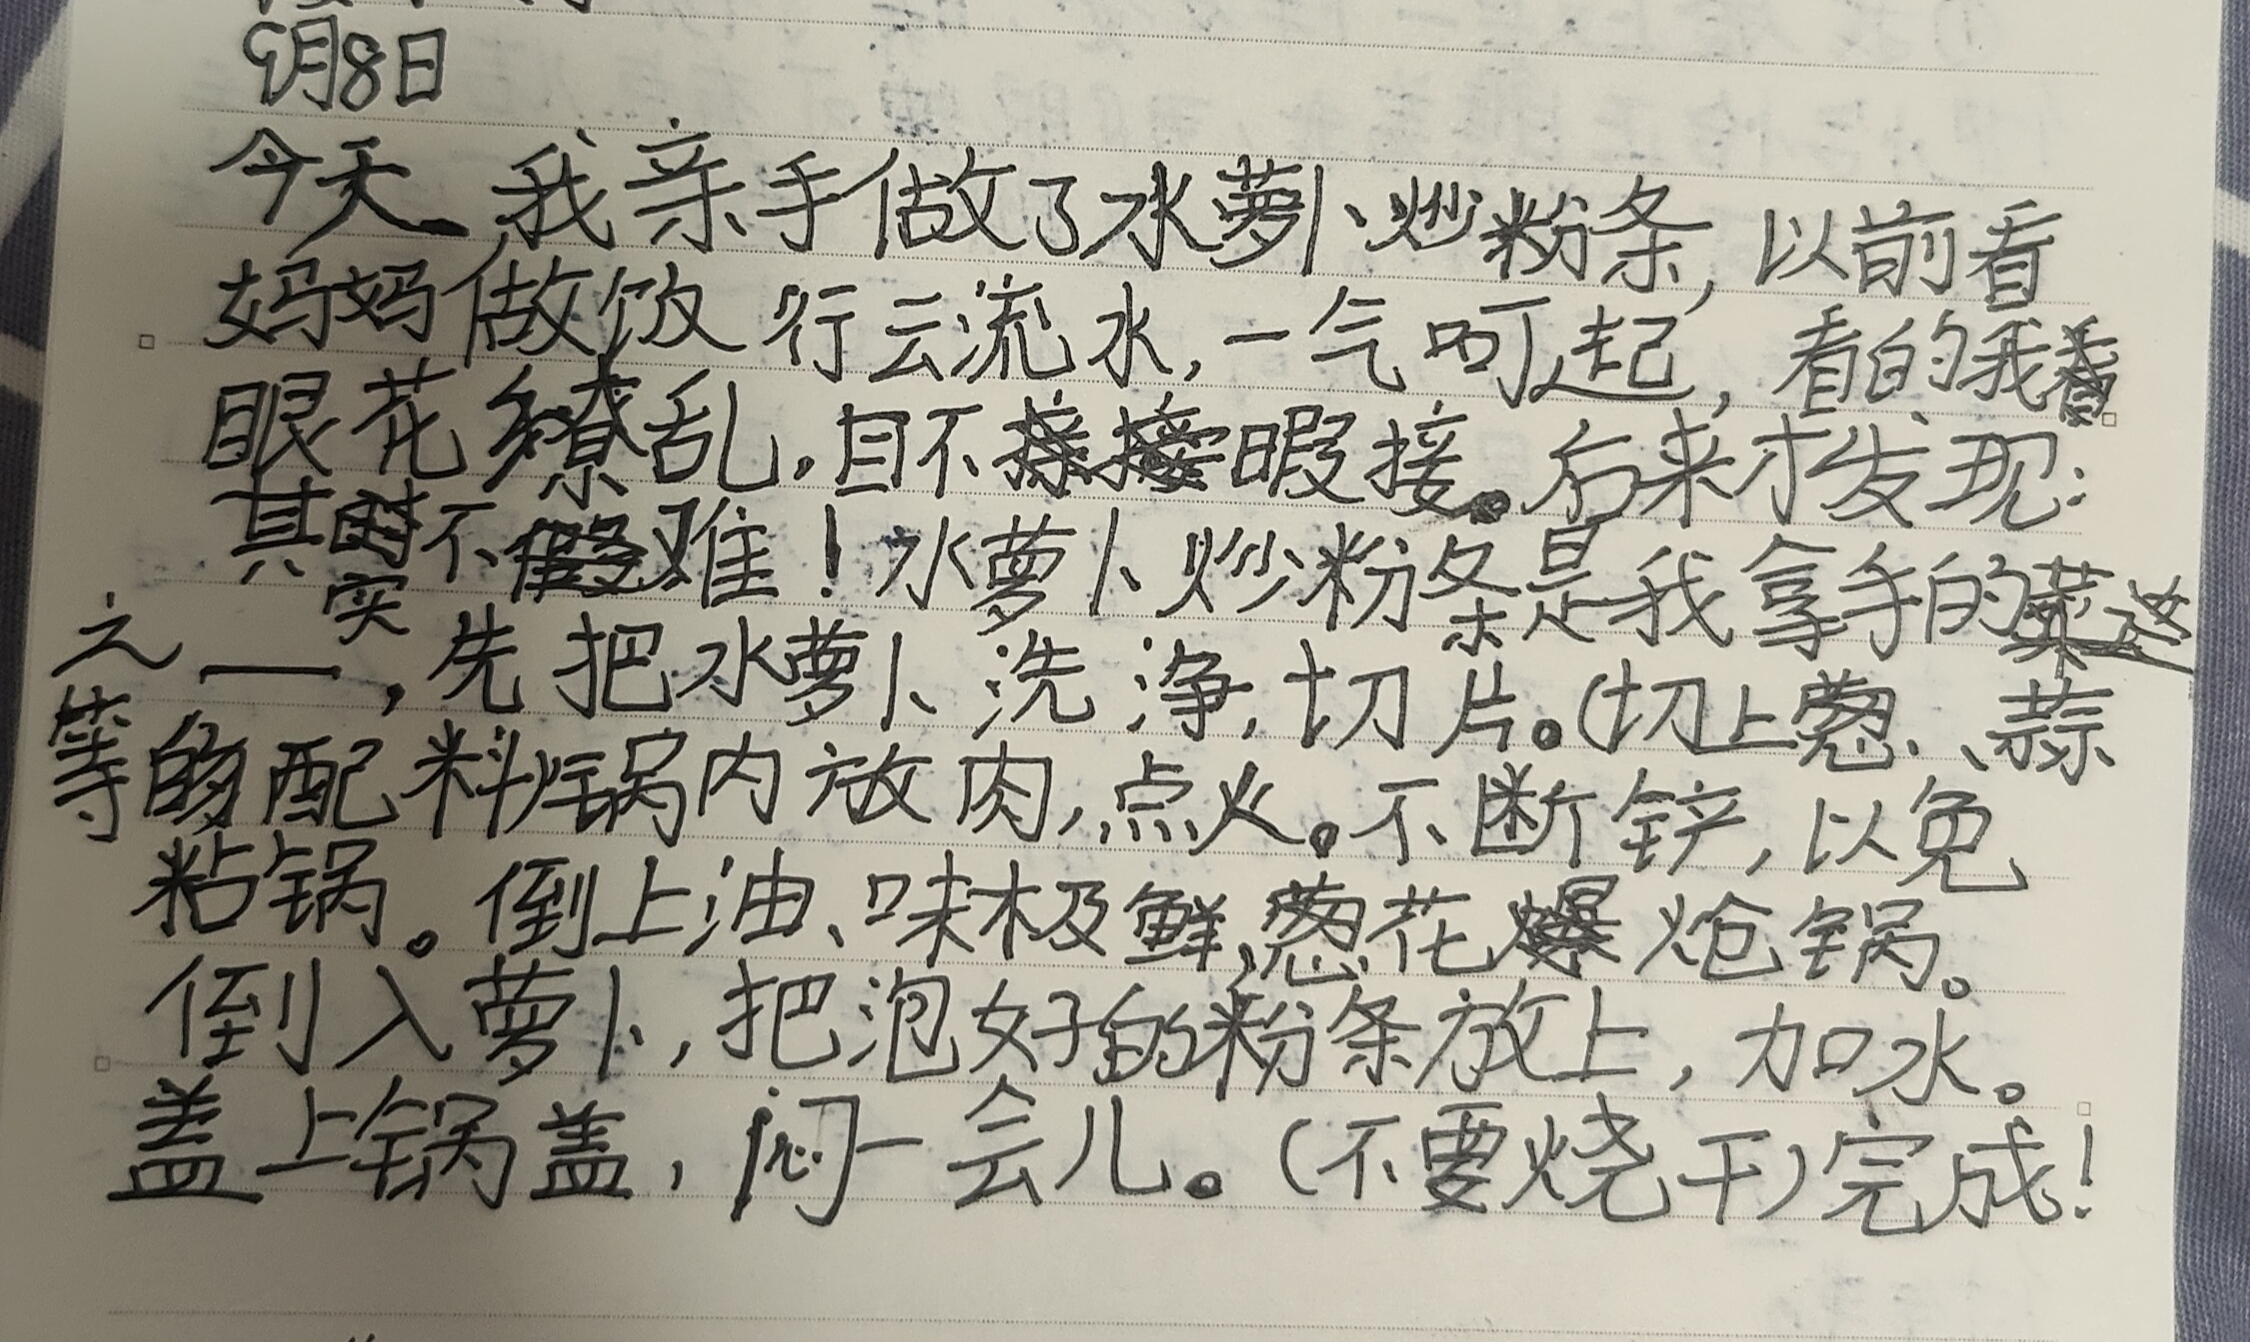 9月8日
今天,我亲手做了水萝卜炒粉条,以前看
妈妈做饭行云流水,一气呵起,看的我
眼花缭乱,目不暇接。后来才发现:
其实不难!水萝卜炒粉条是我拿手的菜
之一,先把水萝卜洗净,切片。(切上葱、蒜
等的配料)锅内放肉,点火。不断铲,以免
粘锅。倒上油、味极鲜,葱花炝锅。
倒入萝卜,把泡好的粉条放上,加水。
盖上锅盖,闷一会儿。(不要烧干)完成!